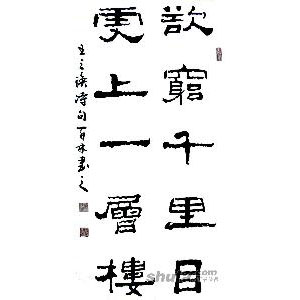 欲窮千里目
更上一層樓
王之渙詩句百林書之